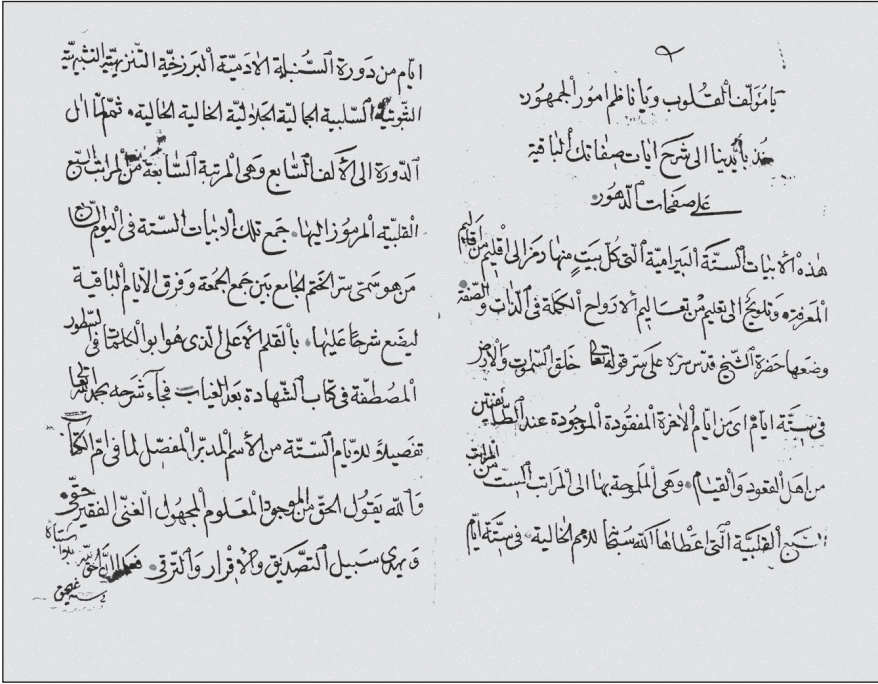 يا مؤلف القلوب ويا ناظم امور الجمهور
خذ بأيدينا الى شرح ايات صفاتك الباقية
على صفحات الدهور
هذه الابيات الستة البيرامية التي كل بيت منها رمز الى اقليم من اقاليم
المعرفة وتلويح الى تعليم من تعاليم الارواح الكملة في الذات والصفة
وضعها حضرة الشيخ قدس سره على سر قوله تعالى خلق السموات والارض
في ستة ايام اى من ايام الاخرة المفقودة الموجودة عند
من اهل القعود والقيام وهى الملموحة بها الى المراتب الست من المراتب
القلبية التي اعطاها الله للامم الخالية في ستة ايام
ايام من دورة السنبلة الادمية البرزخية التنزيهية التشبيهية
الثبوتية السلبية الجمالية الجلالية الخالية الحالية ثم لما ال
الدورة الى الالف السابع وهى المرتبة السابعة من المراتب السبع
القلبية المرموز اليها جمع تلك الابيات الستة في اليوم السابع
من هو سمى سر الختم الجامع بين جمع الجمعة وفرق الايام الباقية
ليضع شرحا عليها بالقلم الاعلى الذى هو ابو الكلمات في السطور
المصطفة في كتاب الشهادة بعد الغياب فجاء شرحه بحمد الله تعالى
تفصيلا للايام الستة من الاسم المدبر المفصل لما في ام الكتاب
والله يقول الحق من الموجود المعلوم المجهول الغنى الفقير حقى
ويهدى سبيل التصديق والاقرار والترقى